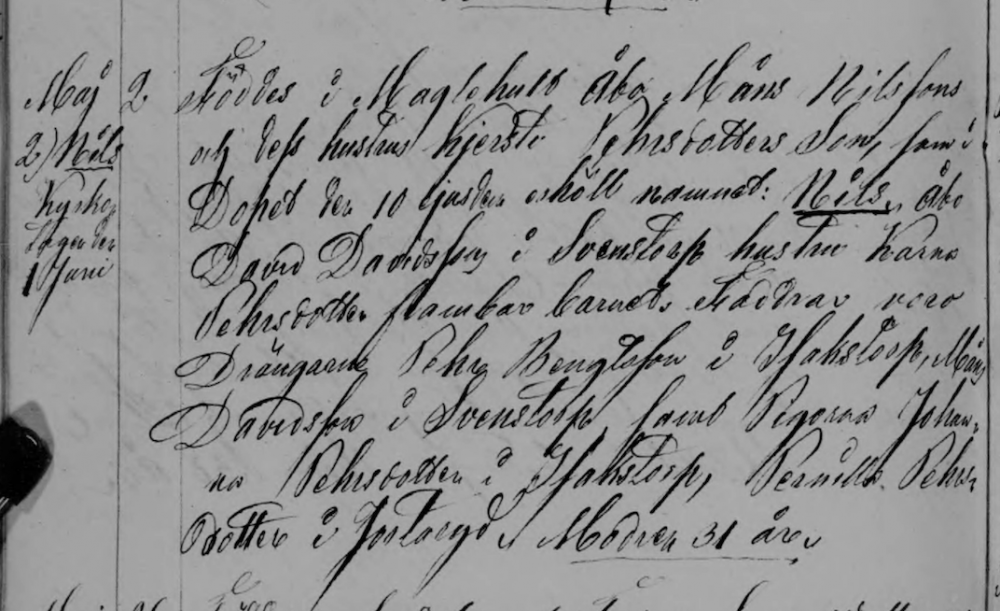 Maj 2
2) Nils
Kyrko
tagen den
1 Juni
Föddes i Maglehult Åbo Måns Nilssons
och dess hustru Kjersti Pehrsdotters Son, som i
Dopet den 10 ejusdem erhöll namnet: Nils, åbo
David Davidsson i Svenstorp hustru Karna
Pehrsdotter frambar barnet. Faddrar voro
Drängarne Pehr Bengtsson i Isakstorp, Måns
Davidsson i Svenstorp, samt Pigorna Johan-
na Pehrsdotter i Isakstorp, Pernilla Pehrs-
dotter i Modren 31 år.